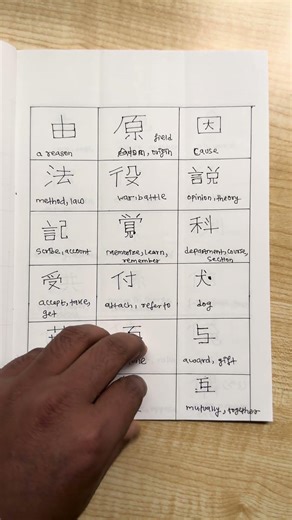 由 原 因
a reason field, origin Cause
法 役 説
method, law war, battle opinion, theory
記 覚 科
scribe, account memorise, learn, remember department, course, section
受 付 犬
accept, take, get attach, refer to dog
与
award, gift
互
mutually, together